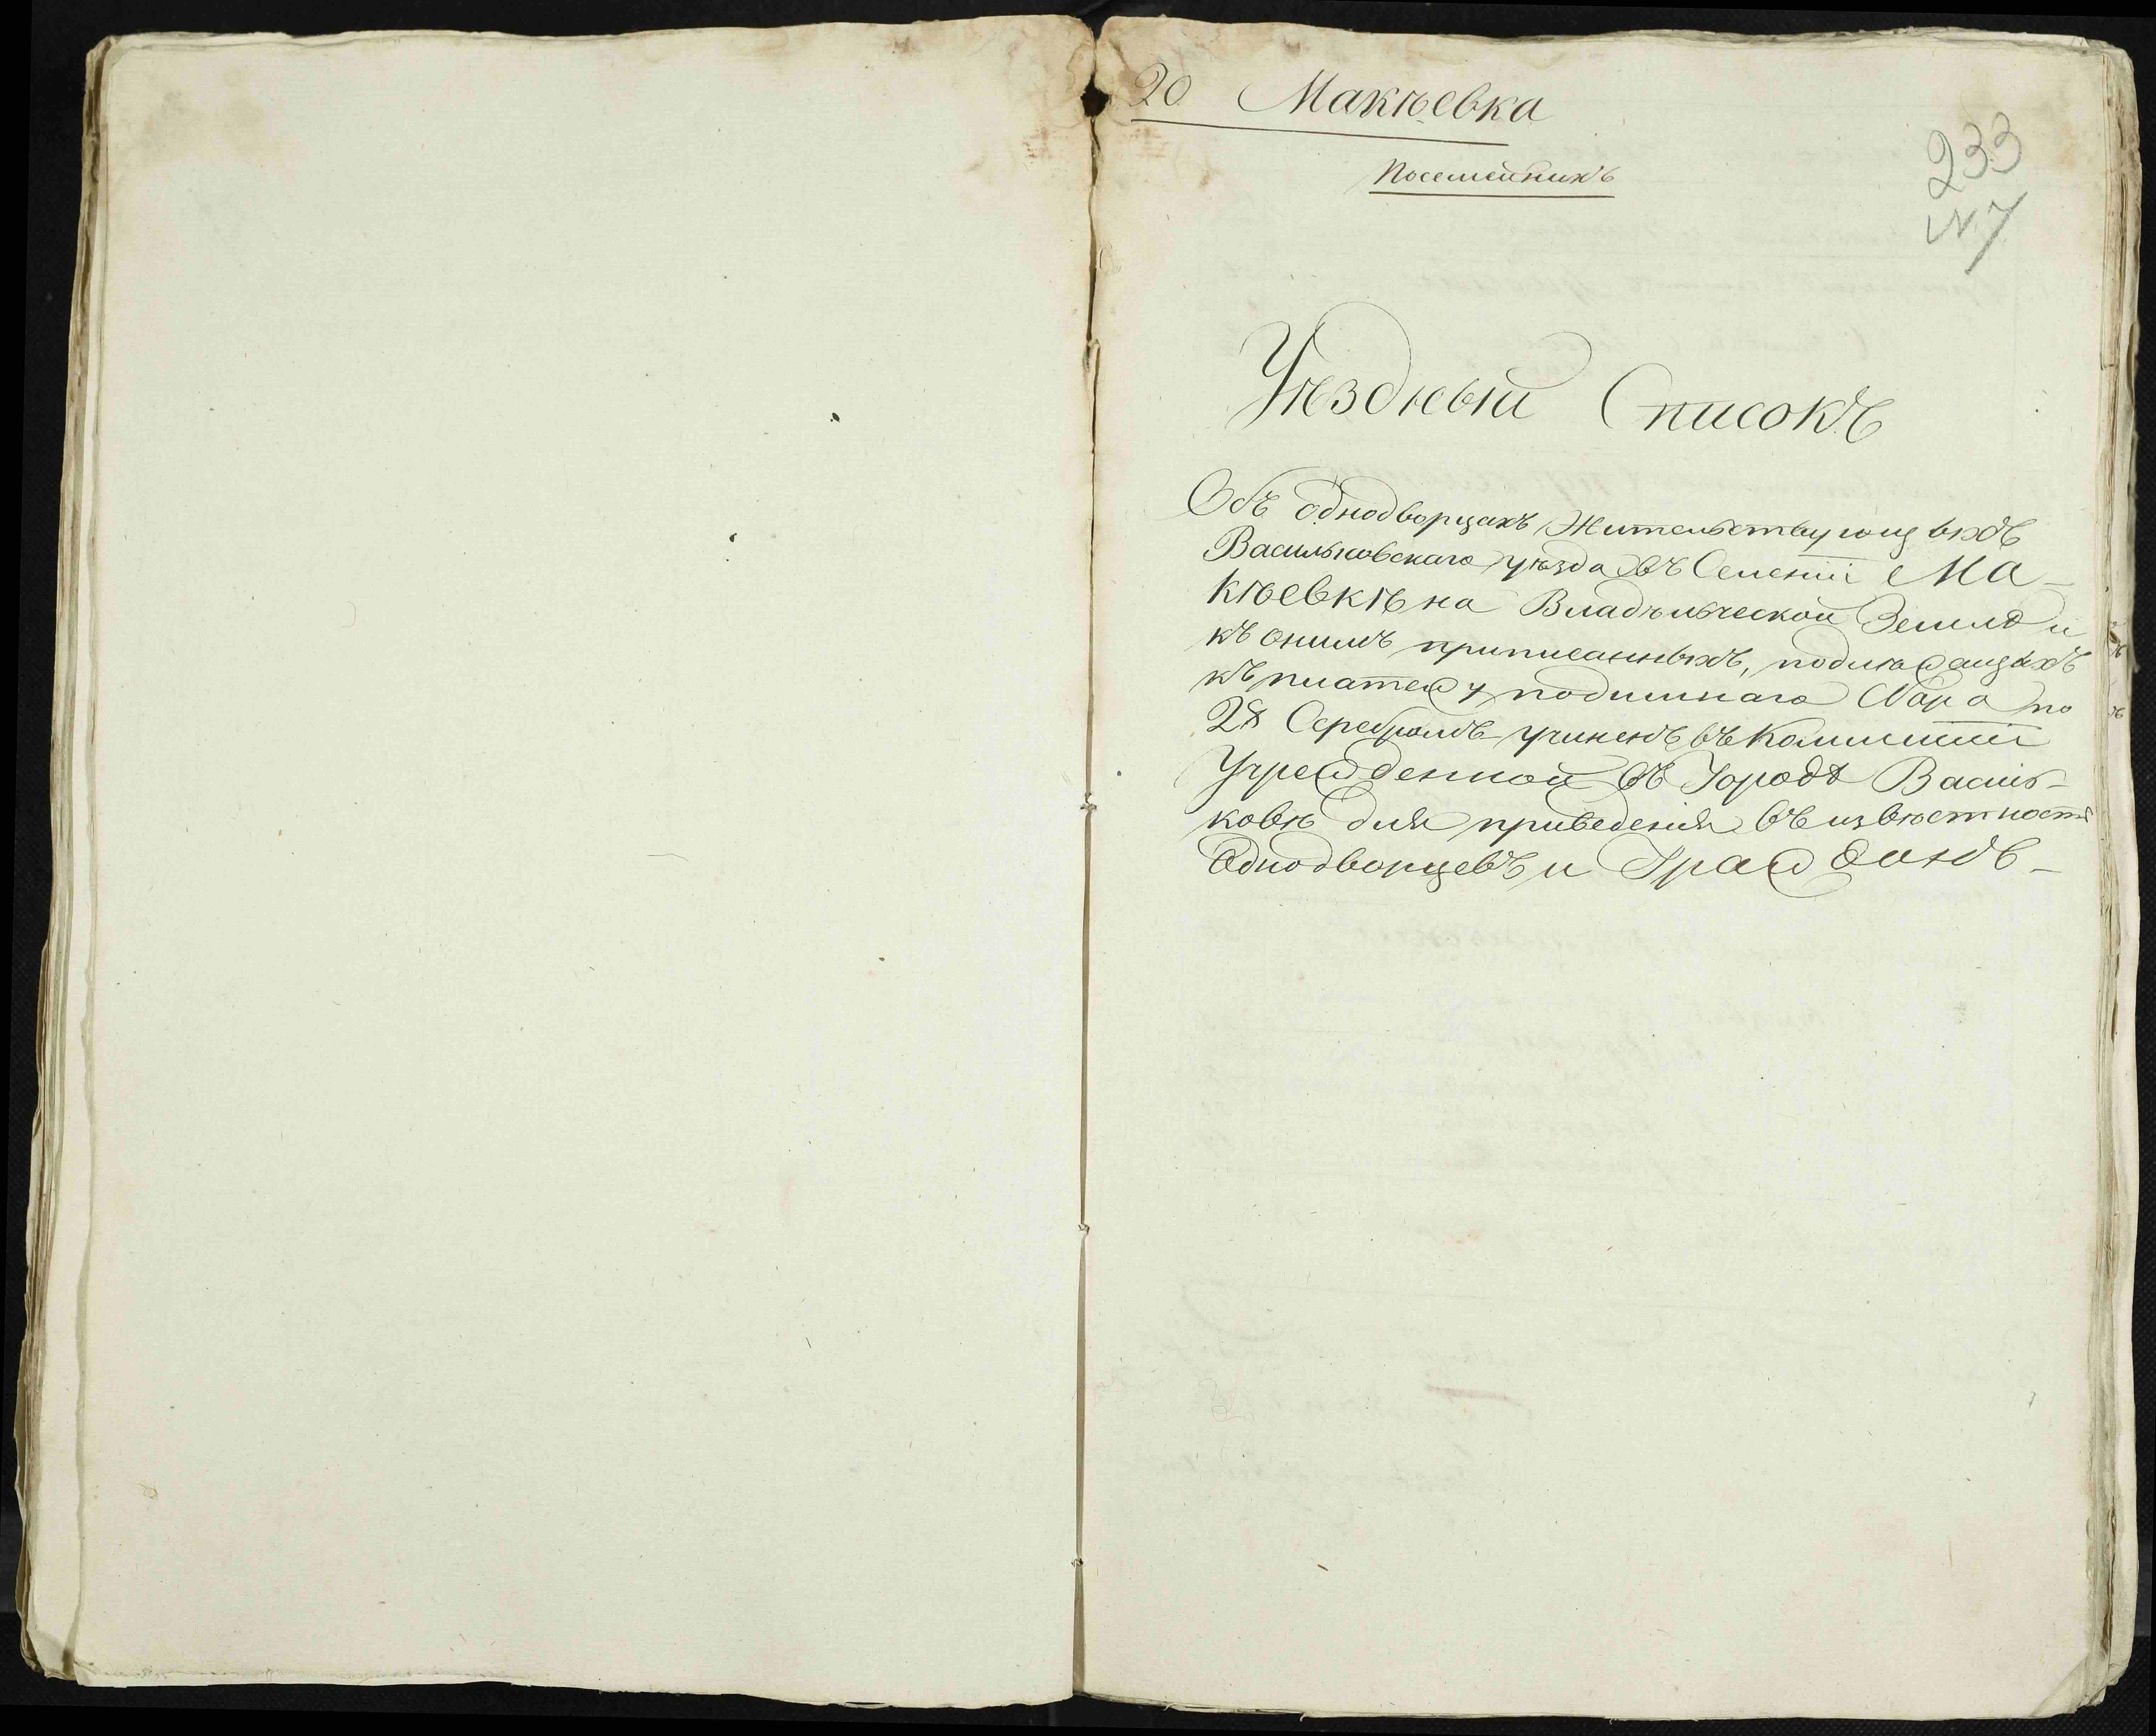 20 Макѣевка
Посемейникъ
233
№ 7
Уѣздный Списокъ
Объ однодворцахъ Жительствующихъ
Васильковскаго уѣзда въ Селеніи Ма-
кѣевкѣ на Владѣльческой Землѣ и
къ онимъ приписанныхъ, подлежащихъ
къ платежу подимнаго Збора по
2 Серебромъ учиненъ въ Коммиссіи
Учрежденной въ Городѣ Василь-
ковѣ для приведенія въ извѣстность
Однодворцевъ и Гражданъ